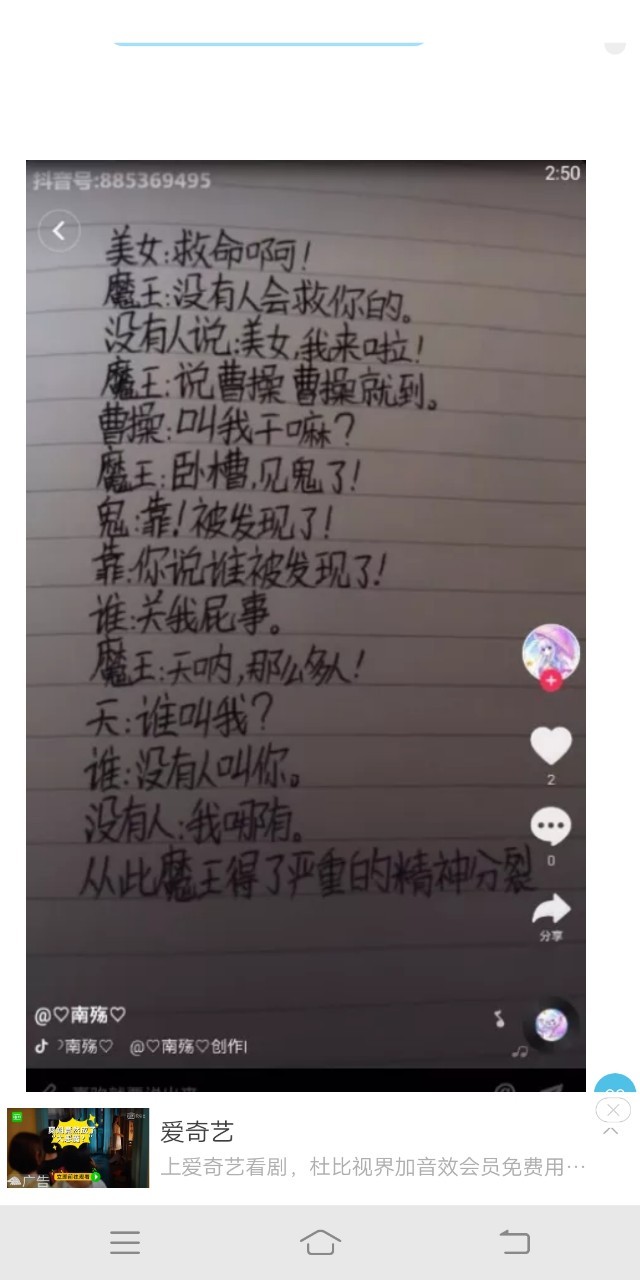 抖音号:885369495
2:50
美女:救命啊!
魔王:没有人会救你的。
没有人说:美女,我来啦!
魔王:说曹操曹操就到。
曹操:叫我干嘛?
魔王:卧槽,见鬼了!
鬼:靠!被发现了!
靠:你说谁被发现了!
谁:关我屁事。
魔王:天呐,那么多人!
天:谁叫我?
谁:没有人叫你。
没有人:我哪有。
从此魔王得了严重的精神分裂
2
0
分享
@♡南殇♡
南殇♡ @♡南殇♡创作
爱奇艺
上爱奇艺看剧，杜比视界加音效会员免费用…
广告